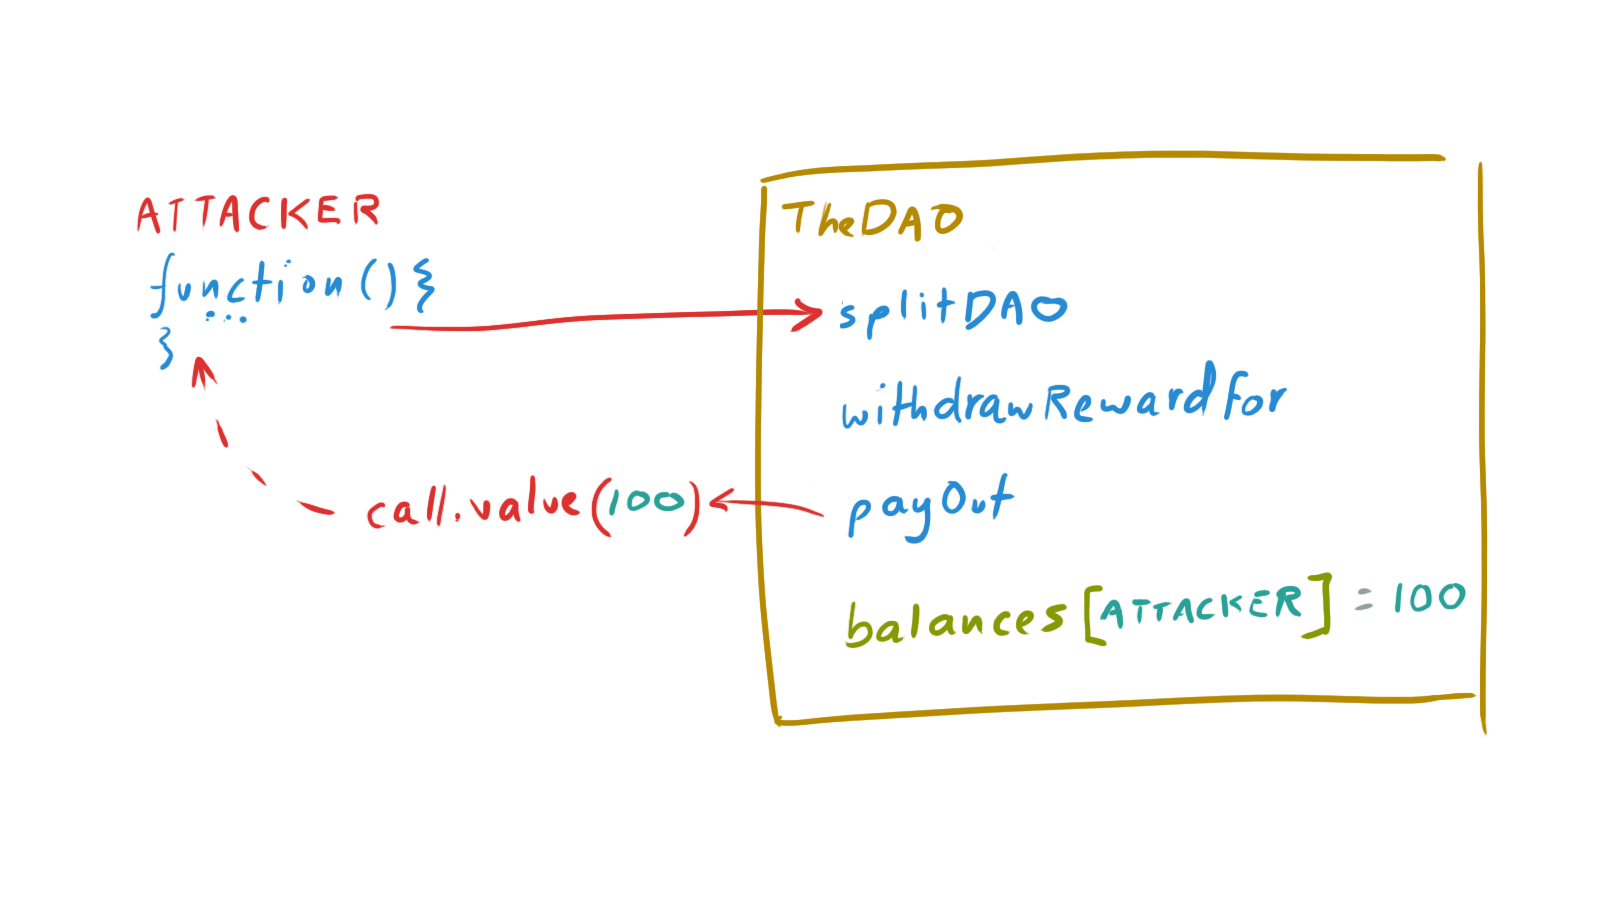 ATTACKER
function(){
...
}
call.value(100)
TheDAO
splitDAO
withdrawRewardFor
payOut
balances[ATTACKER] = 100